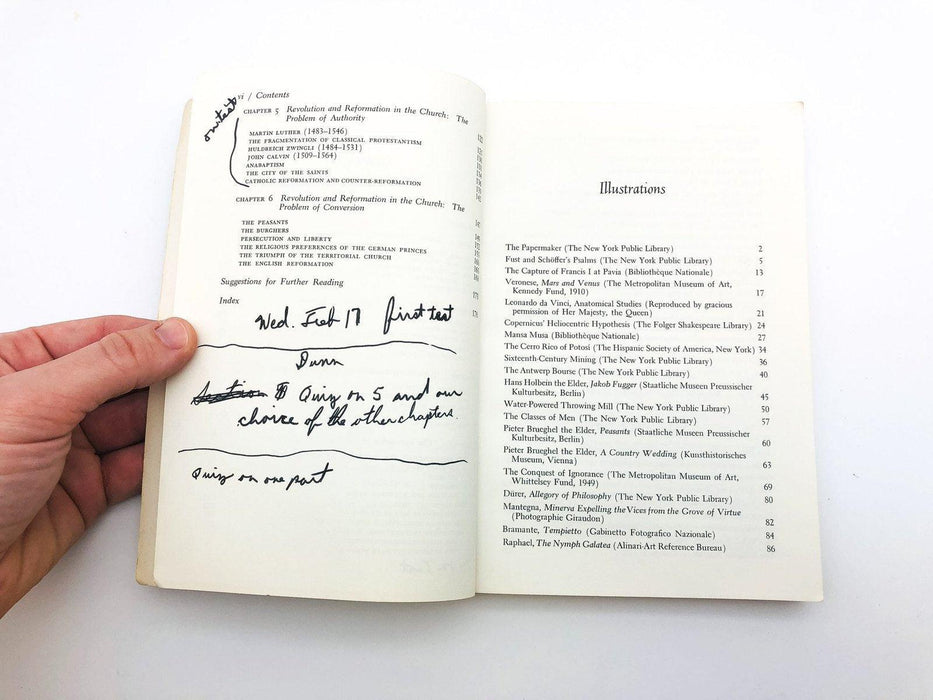 vi / Contents
on test
CHAPTER 5 Revolution and Reformation in the Church: The
Problem of Authority
MARTIN LUTHER (1483–1546)
THE FRAGMENTATION OF CLASSICAL PROTESTANTISM
HULDREICH ZWINGLI (1484–1531)
JOHN CALVIN (1509–1564)
ANABAPTISM
THE CITY OF THE SAINTS
CATHOLIC REFORMATION AND COUNTER-REFORMATION
CHAPTER 6 Revolution and Reformation in the Church: The
Problem of Conversion
THE PEASANTS
THE BURGHERS
PERSECUTION AND LIBERTY
THE RELIGIOUS PREFERENCES OF THE GERMAN PRINCES
THE TRIUMPH OF THE TERRITORIAL CHURCH
THE ENGLISH REFORMATION
Suggestions for Further Reading
Index
Wed. Feb 17 first test
Dunn
Quiz on 5 and our
choice of the other chapters.
Quiz on one part
Illustrations
The Papermaker (The New York Public Library) 2
Fust and Schöffer's Psalms (The New York Public Library) 5
The Capture of Francis I at Pavia (Bibliothèque Nationale) 13
Veronese, Mars and Venus (The Metropolitan Museum of Art,
Kennedy Fund, 1910) 17
Leonardo da Vinci, Anatomical Studies (Reproduced by gracious
permission of Her Majesty, the Queen) 21
Copernicus' Heliocentric Hypothesis (The Folger Shakespeare Library) 24
Mansa Musa (Bibliothèque Nationale) 27
The Cerro Rico of Potosi (The Hispanic Society of America, New York) 34
Sixteenth-Century Mining (The New York Public Library) 36
The Antwerp Bourse (The New York Public Library) 40
Hans Holbein the Elder, Jakob Fugger (Staatliche Museen Preussischer
Kulturbesitz, Berlin) 45
Water-Powered Throwing Mill (The New York Public Library) 50
The Classes of Men (The New York Public Library) 57
Pieter Brueghel the Elder, Peasants (Staatliche Museen Preussischer
Kulturbesitz, Berlin) 60
Pieter Brueghel the Elder, A Country Wedding (Kunsthistorisches
Museum, Vienna) 63
The Conquest of Ignorance (The Metropolitan Museum of Art,
Whittelsey Fund, 1949) 69
Dürer, Allegory of Philosophy (The New York Public Library) 80
Mantegna, Minerva Expelling the Vices from the Grove of Virtue
(Photographie Giraudon) 82
Bramante, Tempietto (Gabinetto Fotografico Nazionale) 84
Raphael, The Nymph Galatea (Alinari-Art Reference Bureau) 86